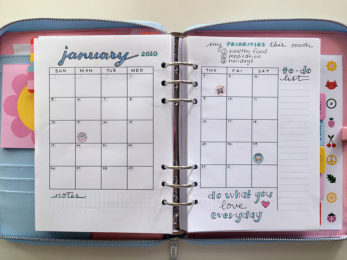 january 2020
SUN MON TUES WED
notes
my PRIORITIES this month
① healthy food
② meditation
③ holidays
THU FRI SAT
to-do
list
do what you
love
everyday